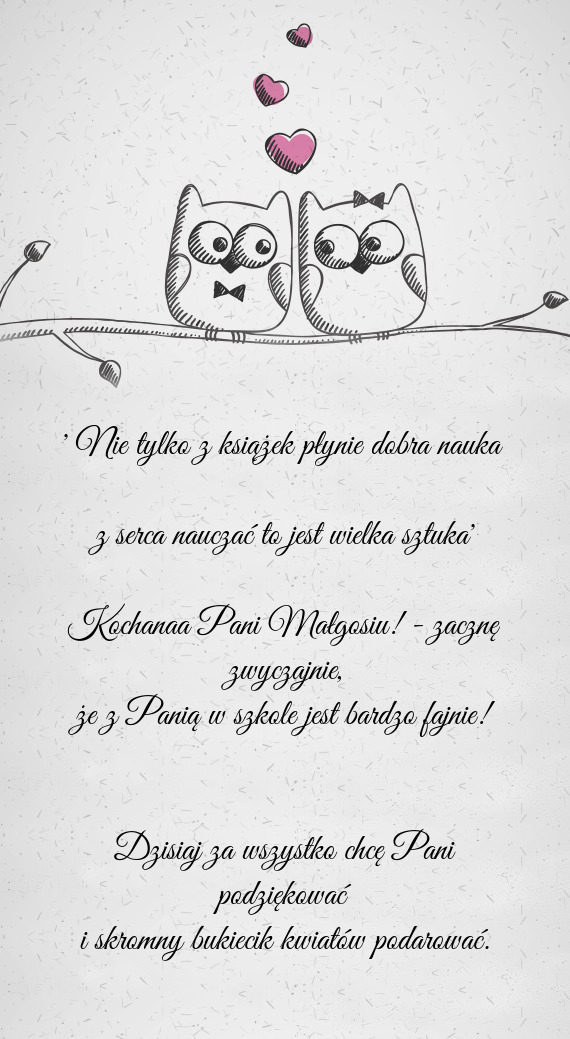 ' Nie tylko z książek płynie dobra nauka
z serca nauczać to jest wielka sztuka'
Kochanaa Pani Małgosiu! - zacznę
zwyczajnie,
że z Panią w szkole jest bardzo fajnie!
Dzisiaj za wszystko chcę Pani
podziękować
i skromny bukiecik kwiatów podarować.